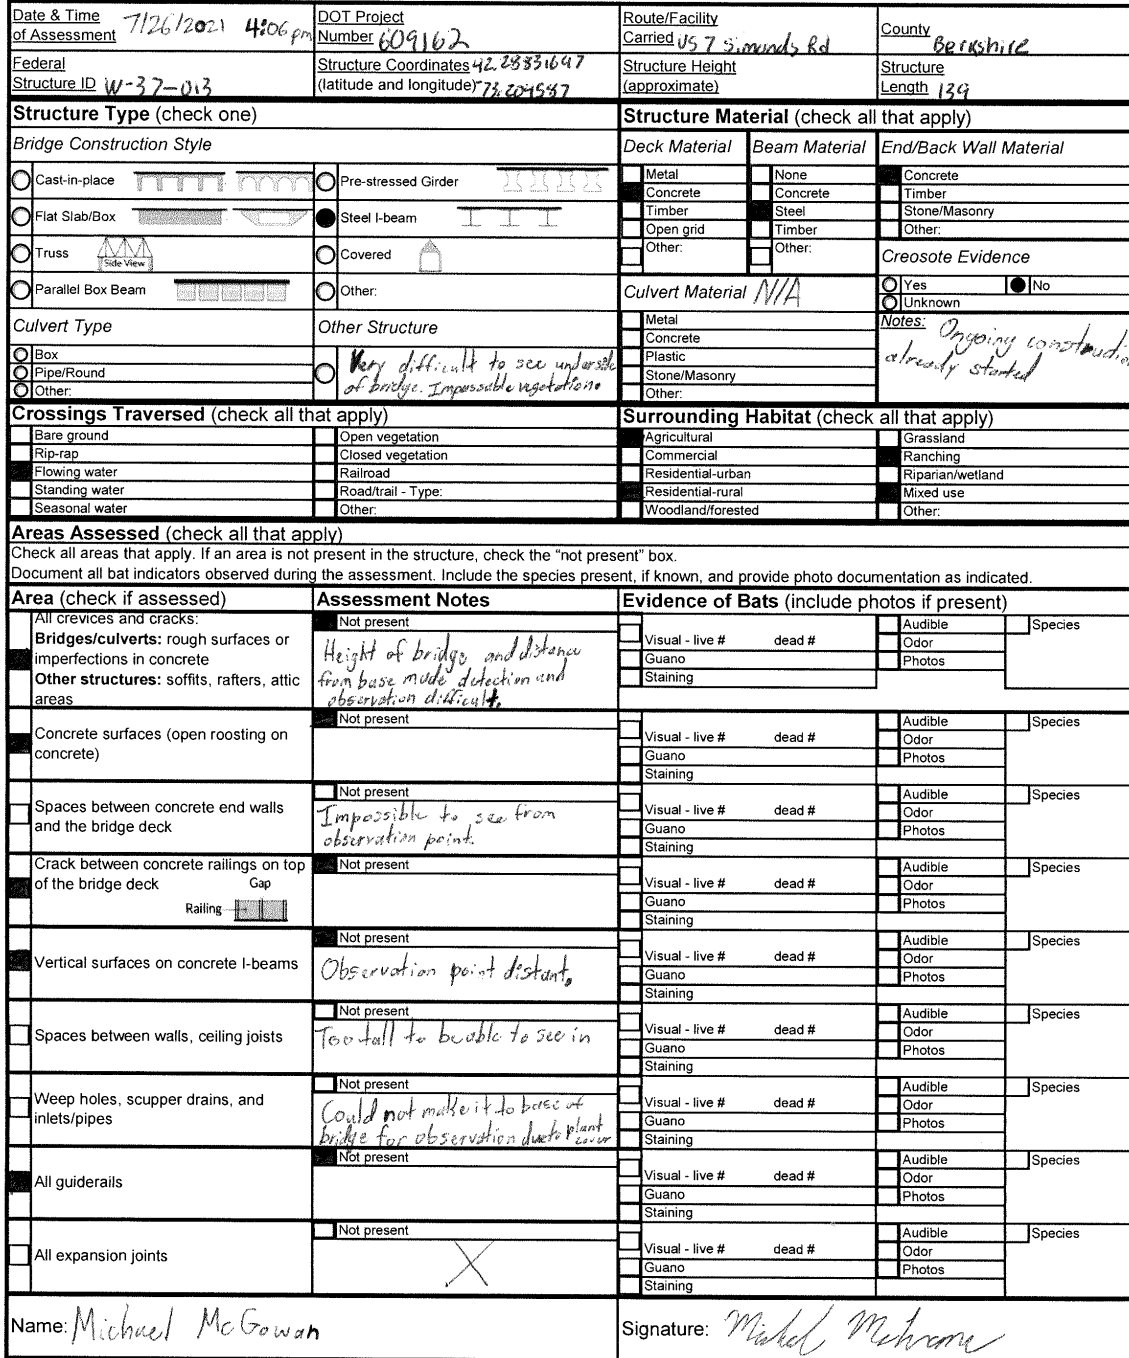 Date & Time of Assessment 7/26/2021 4:06 pm
DOT Project Number 609162
Route/Facility Carried US 7 Simonds Rd
County Berkshire
Federal Structure ID W-37-013
Structure Coordinates (latitude and longitude)
Structure Height (approximate)
Structure Length 139
Structure Type (check one)
Bridge Construction Style
Cast-in-place
Pre-stressed Girder
Flat Slab/Box
Steel I-beam
Truss
Side View
Covered
Parallel Box Beam
Other:
Culvert Type
Other Structure
Box
Pipe/Round
Other:
Very difficult to see underside
of bridge. Impassable vegetation.
Structure Material (check all that apply)
Deck Material
Beam Material
End/Back Wall Material
Metal
None
Concrete
Concrete
Concrete
Timber
Timber
Steel
Stone/Masonry
Open grid
Timber
Other:
Other:
Other:
Creosote Evidence
Culvert Material N/A
Yes
No
Unknown
Metal
Concrete
Plastic
Stone/Masonry
Other:
Notes: Ongoing constructio
already started
Crossings Traversed (check all that apply)
Bare ground
Open vegetation
Rip-rap
Closed vegetation
Flowing water
Railroad
Standing water
Road/trail - Type:
Seasonal water
Other:
Surrounding Habitat (check all that apply)
Agricultural
Grassland
Commercial
Ranching
Residential-urban
Riparian/wetland
Residential-rural
Mixed use
Woodland/forested
Other:
Areas Assessed (check all that apply)
Check all areas that apply. If an area is not present in the structure, check the "not present" box.
Document all bat indicators observed during the assessment. Include the species present, if known, and provide photo documentation as indicated.
Area (check if assessed)
Assessment Notes
Evidence of Bats (include photos if present)
All crevices and cracks:
Bridges/culverts: rough surfaces or
imperfections in concrete
Other structures: soffits, rafters, attic
areas
Not present
Height of bridge and distance
from base made detection and
observation difficult.
Visual - live # dead #
Guano
Staining
Audible
Odor
Photos
Species
Concrete surfaces (open roosting on
concrete)
Not present
Visual - live # dead #
Guano
Staining
Audible
Odor
Photos
Species
Spaces between concrete end walls
and the bridge deck
Not present
Impossible to see from
observation point.
Visual - live # dead #
Guano
Staining
Audible
Odor
Photos
Species
Crack between concrete railings on top
of the bridge deck
Gap
Railing
Not present
Visual - live # dead #
Guano
Staining
Audible
Odor
Photos
Species
Vertical surfaces on concrete I-beams
Not present
Observation point distant.
Visual - live # dead #
Guano
Staining
Audible
Odor
Photos
Species
Spaces between walls, ceiling joists
Not present
Too tall to be able to see in
Visual - live # dead #
Guano
Staining
Audible
Odor
Photos
Species
Weep holes, scupper drains, and
inlets/pipes
Not present
Could not make it to base of
bridge for observation due to plant
cover
Visual - live # dead #
Guano
Staining
Audible
Odor
Photos
Species
All guiderails
Not present
Visual - live # dead #
Guano
Staining
Audible
Odor
Photos
Species
All expansion joints
Not present
X
Visual - live # dead #
Guano
Staining
Audible
Odor
Photos
Species
Name: Michael McGowan
Signature: